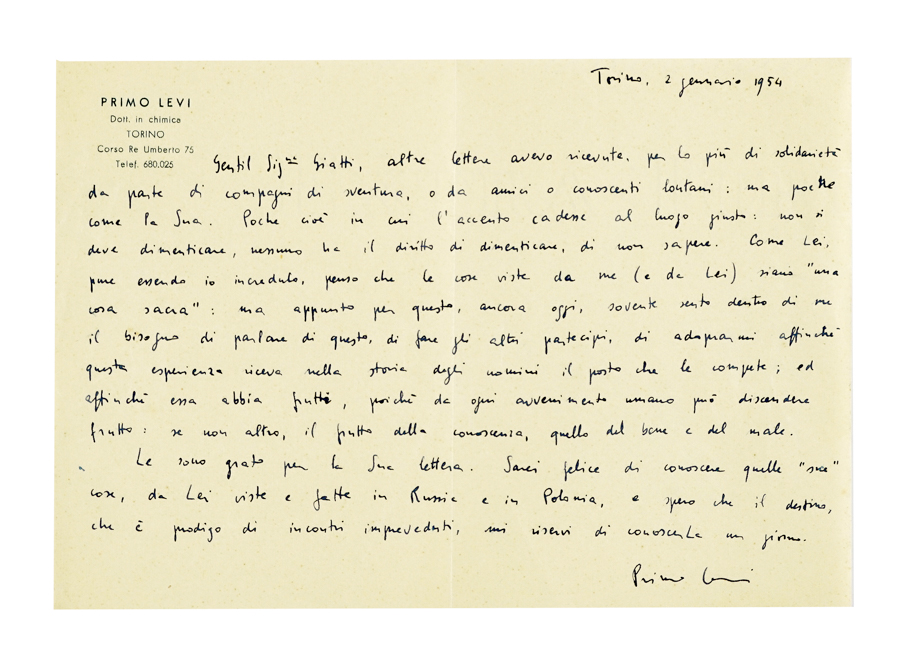 Torino, 2 gennaio 1954
PRIMO LEVI
Dott. in chimica
TORINO
Corso Re Umberto 75
Telef. 680.025
Gentil Sig.na Giatti, altre lettere avevo ricevute, per lo più di solidarietà
da parte di compagni di sventura, o da amici o conoscenti lontani: ma poche
come la Sua. Poche cioè in cui l'accento cadesse al luogo giusto: non si
deve dimenticare, nessuno ha il diritto di dimenticare, di non sapere. Come Lei,
pure essendo io incredulo, penso che le cose viste da me (e da Lei) siano "una
cosa sacra": ma appunto per questo, ancora oggi, sovente sento dentro di me
il bisogno di parlare di questo, di fare gli altri partecipi, di adoprarmi affinché
questa esperienza riceva nella storia degli uomini il posto che le compete; ed
affinché essa abbia frutto, poiché da ogni avvenimento umano può discendere
frutto: se non altro, il frutto della conoscenza, quello del bene e del male.
Le sono grato per la Sua lettera. Sarei felice di conoscere quelle "sue"
cose, da Lei viste e fatte in Russia e in Polonia, e spero che il destino,
che è prodigo di incontri impreveduti, mi riservi di conoscerLa un giorno.
Primo Levi